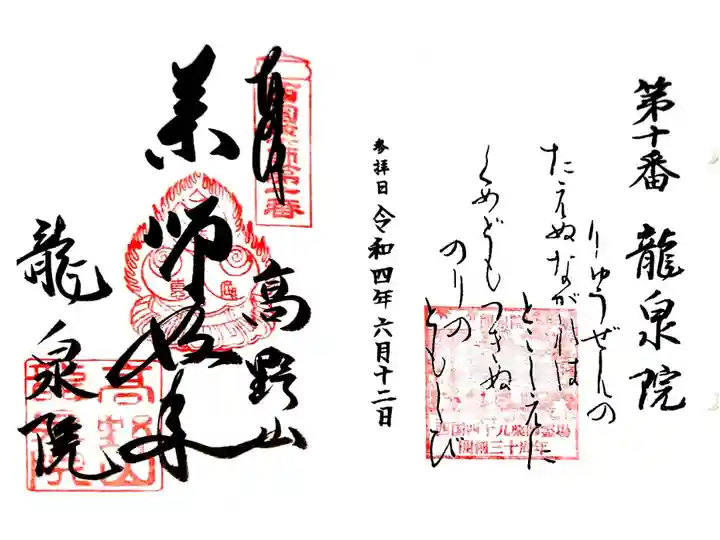 第十番 龍泉院
りゅうぜんの
たえぬながれは
とこしえに
くめどもつきぬ
のりの
ともしび
西国四十九薬師霊場
開創三十周年
参拝日 令和四年六月十二日
奉拝
西国薬師第十番
高野山
薬師如来
龍泉院